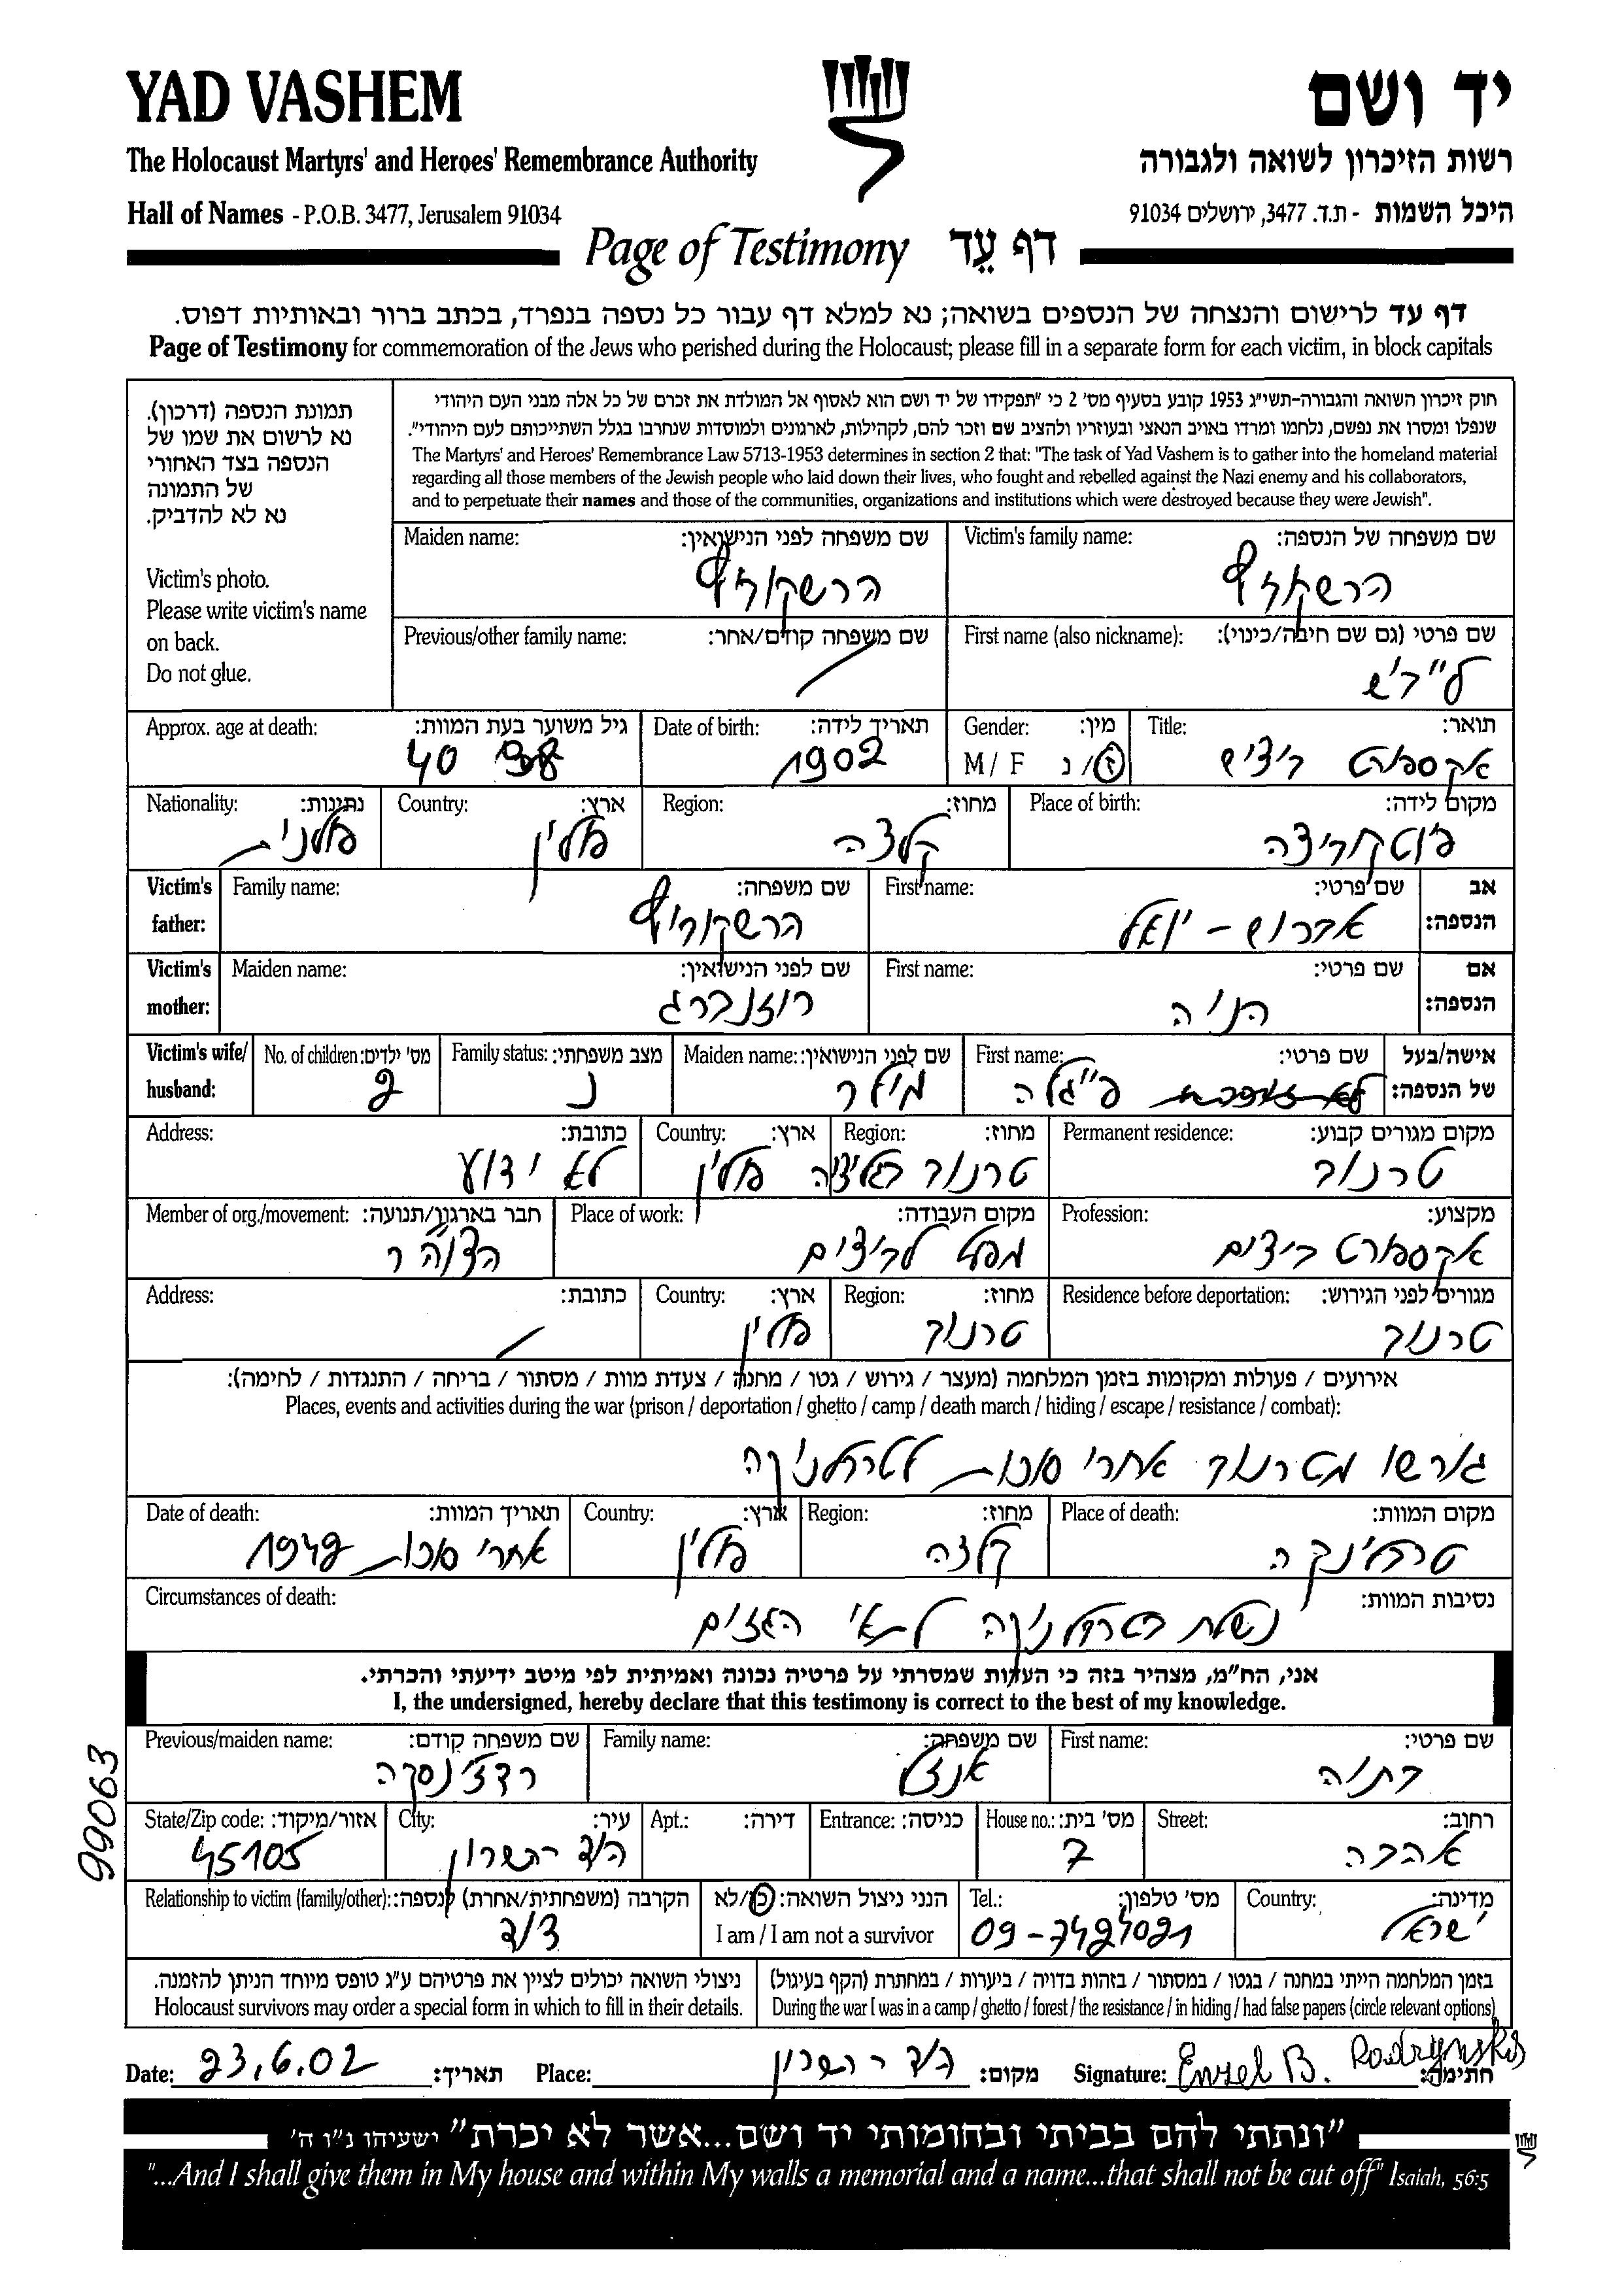 YAD VASHEM
יד ושם
The Holocaust Martyrs' and Heroes' Remembrance Authority
רשות הזיכרון לשואה ולגבורה
Hall of Names - P.O.B. 3477, Jerusalem 91034
היכל השמות - ת.ד. 3477, ירושלים 91034
Page of Testimony דף עֵד
דף עד לרישום והנצחה של הנספים בשואה; נא למלא דף עבור כל נספה בנפרד, בכתב ברור ובאותיות דפוס.
Page of Testimony for commemoration of the Jews who perished during the Holocaust; please fill in a separate form for each victim, in block capitals
תמונת הנספה (דרכון).
נא לרשום את שמו של
הנספה בצד האחורי
של התמונה
נא לא להדביק.
Victim's photo.
Please write victim's name
on back.
Do not glue.
חוק זיכרון השואה והגבורה-תשי"ג 1953 קובע בסעיף מס' 2 כי "תפקידו של יד ושם הוא לאסוף אל המולדת את זכרם של כל אלה מבני העם היהודי
שנפלו ומסרו את נפשם, נלחמו ומרדו באויב הנאצי ובעוזריו ולהציב שם וזכר להם, לקהילות, לארגונים ולמוסדות שנחרבו בגלל השתייכותם לעם היהודי".
The Martyrs' and Heroes' Remembrance Law 5713-1953 determines in section 2 that: "The task of Yad Vashem is to gather into the homeland material
regarding all those members of the Jewish people who laid down their lives, who fought and rebelled against the Nazi enemy and his collaborators,
and to perpetuate their names and those of the communities, organizations and institutions which were destroyed because they were Jewish".
Victim's family name: שם משפחה של הנספה:
Maiden name: שם משפחה לפני הנישואין:
הרשקוביץ
הרשקוביץ
First name (also nickname): שם פרטי (גם שם חיבה/כינוי):
Previous/other family name: שם משפחה קודם/אחר:
Title: תואר:
Gender: מין:
Date of birth: תאריך לידה:
Approx. age at death: גיל משוער בעת המוות:
אקספורט ביצים
M / F ז / נ
1902
40
Place of birth: מקום לידה:
Region: מחוז:
Country: ארץ:
Nationality: נתינות:
קלצה
פולין
פולנית
Victim's father: אב הנספה:
First name: שם פרטי:
Family name: שם משפחה:
יואל
הרשקוביץ
Victim's mother: אם הנספה:
First name: שם פרטי:
Maiden name: שם לפני הנישואין:
חיה
רוזנברג
Victim's wife/ husband: אישה/בעל של הנספה:
First name: שם פרטי:
Maiden name: שם לפני הנישואין:
Family status: מצב משפחתי:
No. of children: מס' ילדים:
פייגלה
מילר
נ
2
Permanent residence: מקום מגורים קבוע:
Region: מחוז:
Country: ארץ:
Address: כתובת:
טרנוב
טרנוב גליציה
פולין
לא ידוע
Profession: מקצוע:
Place of work: מקום העבודה:
Member of org./movement: חבר בארגון/תנועה:
אקספורט ביצים
מפעל לביצים
הצוה"ר
Residence before deportation: מגורים לפני הגירוש:
Region: מחוז:
Country: ארץ:
Address: כתובת:
טרנוב
טרנוב
פולין
אירועים / פעולות ומקומות בזמן המלחמה (מעצר / גירוש / גטו / מחנה / צעדת מוות / מסתור / בריחה / התנגדות / לחימה):
Places, events and activities during the war (prison / deportation / ghetto / camp / death march / hiding / escape / resistance / combat):
גורשו מטרנוב אחרי סוכות לטרבלינקה
Place of death: מקום המוות:
Region: מחוז:
Country: ארץ:
Date of death: תאריך המוות:
טרבלינקה
קלצה
פולין
אחרי סוכות 1942
Circumstances of death: נסיבות המוות:
נשלח בטרבלינקה לתאי הגזים
אני, הח"מ, מצהיר בזה כי העדות שמסרתי על פרטיה נכונה ואמיתית לפי מיטב ידיעתי והכרתי.
I, the undersigned, hereby declare that this testimony is correct to the best of my knowledge.
First name: שם פרטי:
Family name: שם משפחה:
Previous/maiden name: שם משפחה קודם:
בתיה
אנזל
רדצ'ינסקה
Street: רחוב:
House no.: מס' בית:
Entrance: כניסה:
Apt.: דירה:
City: עיר:
State/Zip code: אזור/מיקוד:
אהבה
7
הוד השרון
45105
99063
Country: מדינה:
Tel.: מס' טלפון:
הנני ניצול השואה: כן/לא
I am / I am not a survivor
Relationship to victim (family/other): הקרבה (משפחתית/אחרת) לנספה:
ישראל
09-7424021
דוד
בזמן המלחמה הייתי במחנה / בגטו / במסתור / בזהות בדויה / ביערות / במחתרת (הקף בעיגול)
During the war I was in a camp / ghetto / forest / the resistance / in hiding / had false papers (circle relevant options)
ניצולי השואה יכולים לציין את פרטיהם ע"ג טופס מיוחד הניתן להזמנה.
Holocaust survivors may order a special form in which to fill in their details.
Date: 23.6.02 תאריך: Place: הוד השרון מקום: Signature: Enzel B. Radzynska חתימה:
"ונתתי להם בביתי ובחומותי יד ושם...אשר לא יכרת" ישעיהו נ"ו ה'
"...And I shall give them in My house and within My walls a memorial and a name...that shall not be cut off" Isaiah, 56:5